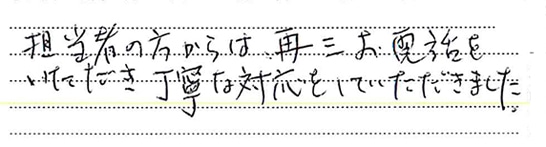 担当者の方からは、再三お電話を
いただき丁寧な対応をしていただきました。